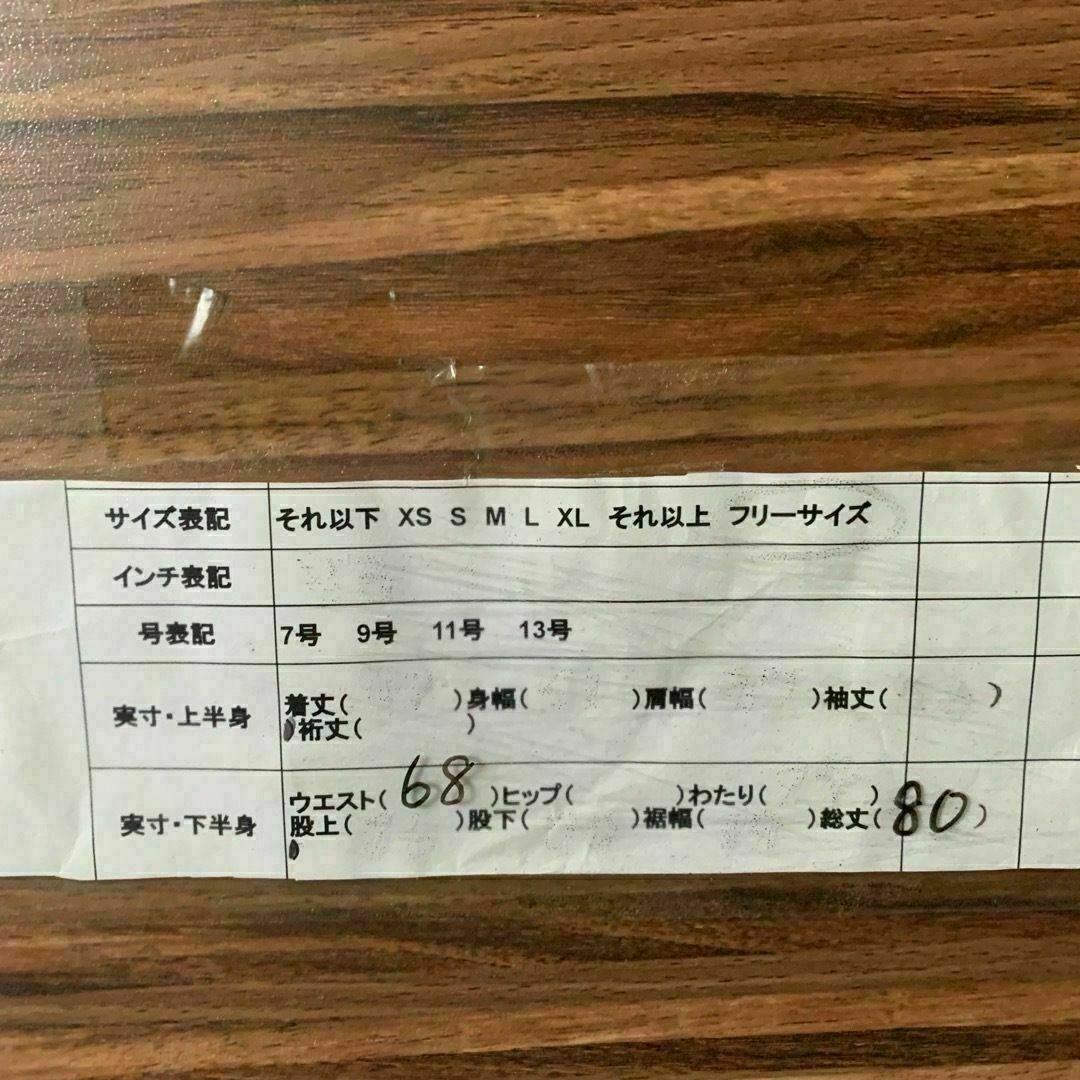 サイズ表記 それ以下 XS S M L XL それ以上 フリーサイズ
インチ表記
号表記 7号 9号 11号 13号
実寸・上半身 着丈( )身幅( )肩幅( )袖丈( )
)裄丈( )
実寸・下半身 ウエスト( 68 )ヒップ( )わたり( )
股上( )股下( )裾幅( )総丈( 80 )
)